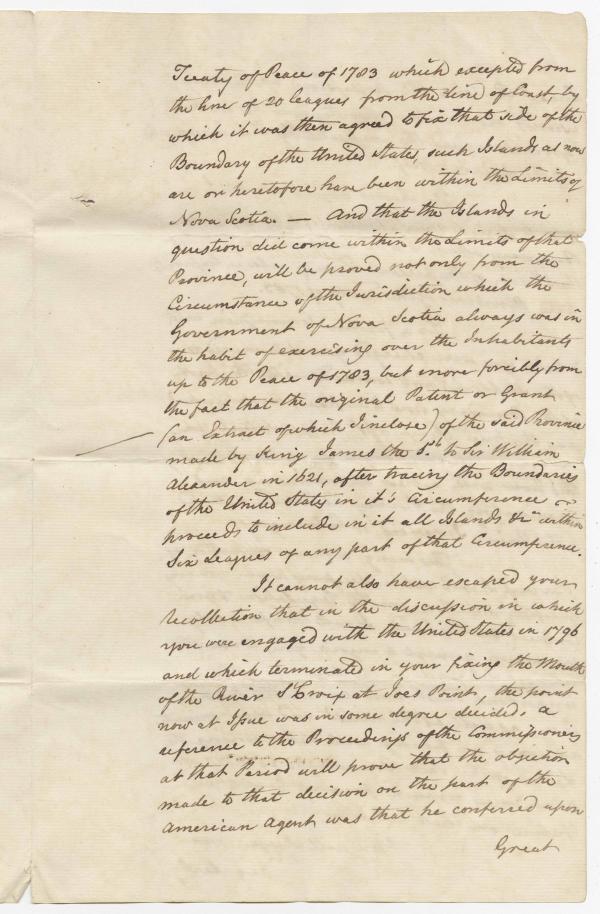 Treaty of Peace of 1783 which excepted from
the line of 20 leagues from the line of Coast, by
which it was then agreed to fix that side of the
Boundary of the United States, such Islands as now
are or heretofore have been within the Limits of
Nova Scotia. — And that the Islands in
question did come within the Limits of that
Province, will be proved not only from the
Circumstance of the Jurisdiction which the
Government of Nova Scotia always was in
the habit of exercising over the Inhabitants
up to the Peace of 1783, but more forcibly from
the fact that the original Patent or Grant
(an Extract of which I inclose) of the said Province
made by King James the 1st. to Sir William
Alexander in 1621, after tracing the Boundaries
of the United States in it's Circumference
proceeds to include in it all Islands &c within
Six Leagues of any part of that Circumference.
It cannot also have escaped your
recollection that in the discussion in which
you were engaged with the United States in 1796
and which terminated in your fixing the Mouth
of the River St Croix at Joes Point, the point
now at Issue was in some degree decided. a
reference to the Proceedings of the Commissioners
at that Period will prove that the objection
made to that decision on the part of the
American Agent was that he conferred upon
Great